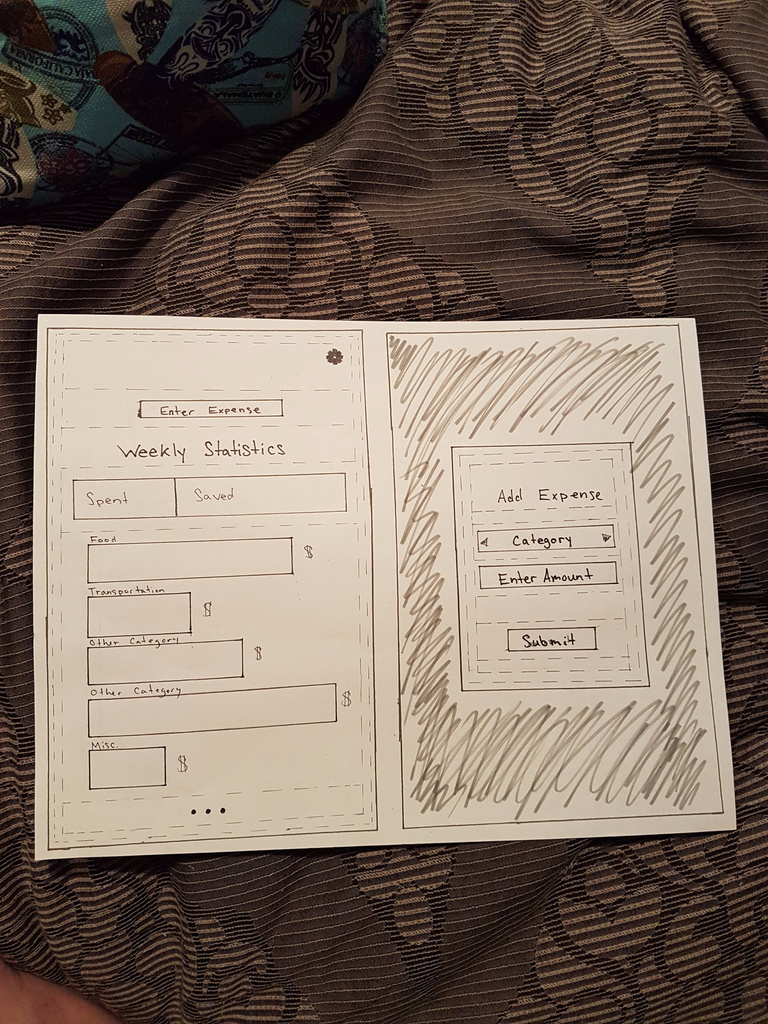 BAJA CALIFORNIA
Enter Expense
Weekly Statistics
Spent Saved
Food
$
Transportation
$
Other Category
$
Other Category
$
Misc.
$
...
Add Expense
Category
Enter Amount
Submit